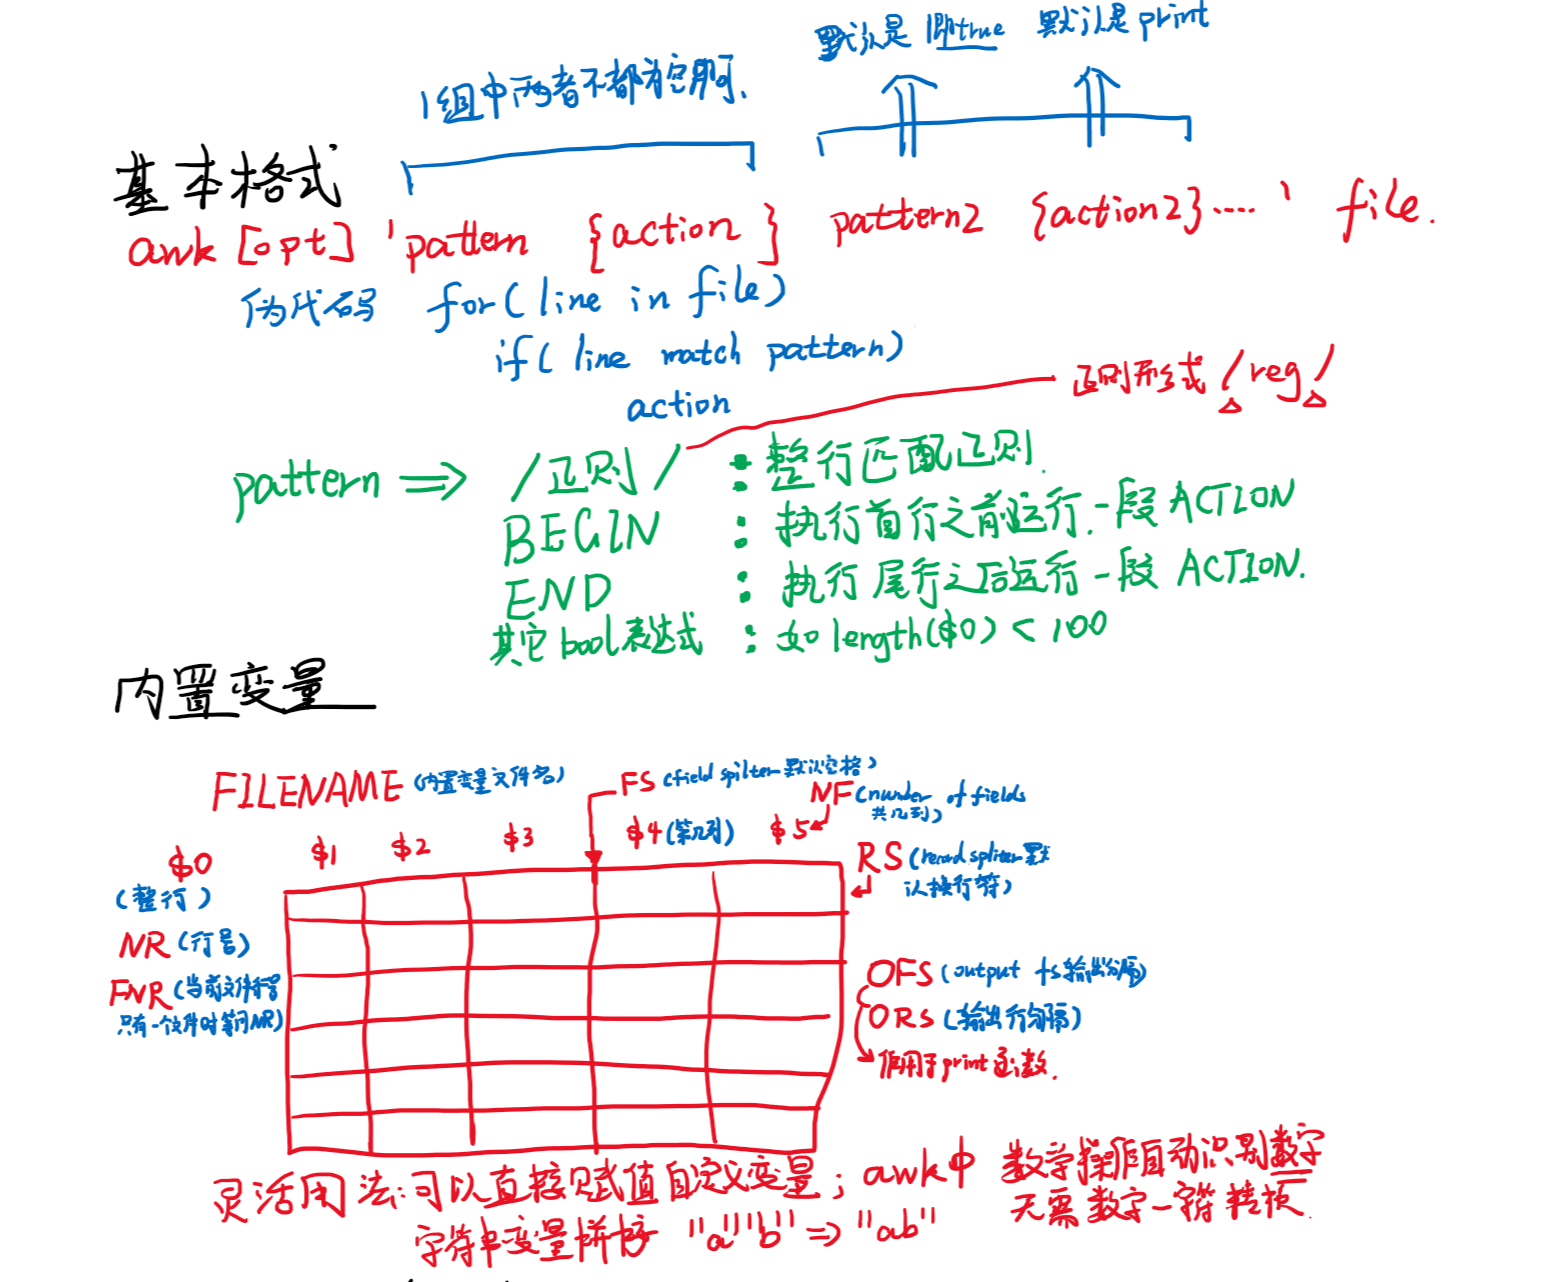 默认是1即true 默认是print
1组中两者不都为空即可.
基本格式
awk [opt] 'pattern {action} pattern2 {action2}....' file.
伪代码 for(line in file)
if( line match pattern)
action
正则形式 /reg/
pattern ⇒ /正则/ : 整行匹配正则.
BEGIN : 执行首行之前运行一段ACTION
END : 执行尾行之后运行一段ACTION.
其它bool表达式 : 如length($0)<100
内置变量
FILENAME (内置变量文件名)
FS (field spilter 默认空格)
NF (number of fields
共几列)
$0 $1 $2 $3 $4 (第几列) $5
(整行)
RS (record spliter 默
认换行符)
NR (行号)
FNR (当前文件行号
只有一个文件时等同NR)
OFS (output fs 输出分隔)
ORS (输出行分隔)
作用于print函数.
灵活用法:可以直接赋值自定义变量; awk中 数学操作自动识别数字
无需数字-字符转换.
字符串变量拼接 "a""b" ⇒ "ab"